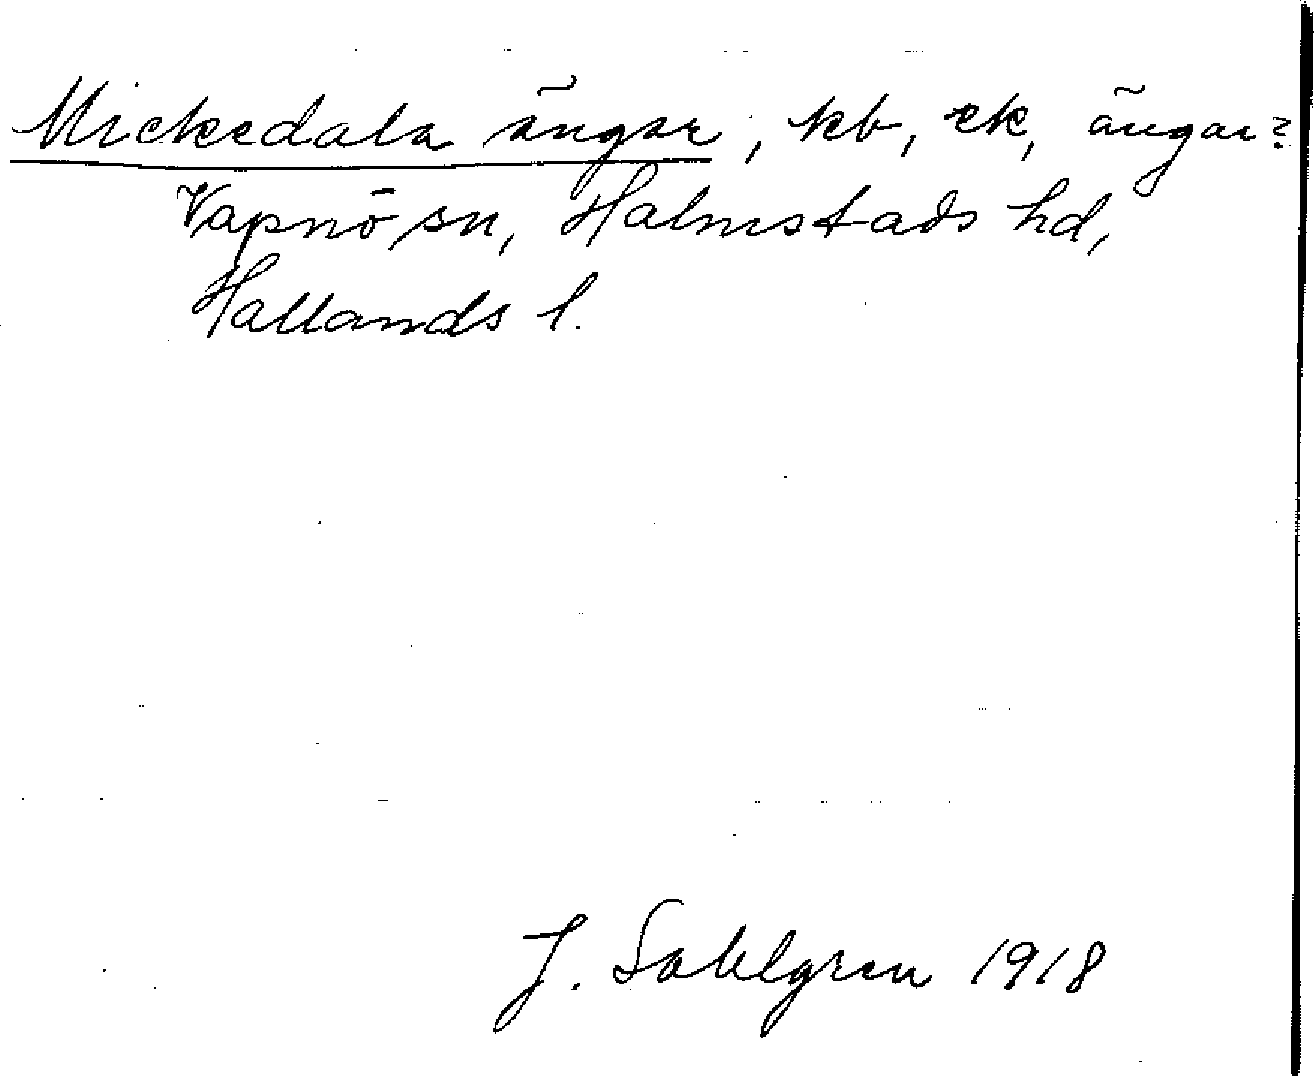 Mickedala ängar, kb, ek, ängar?
Vapnö sn, Halmstads hd,
Hallands l.
J. Sahlgren 1918